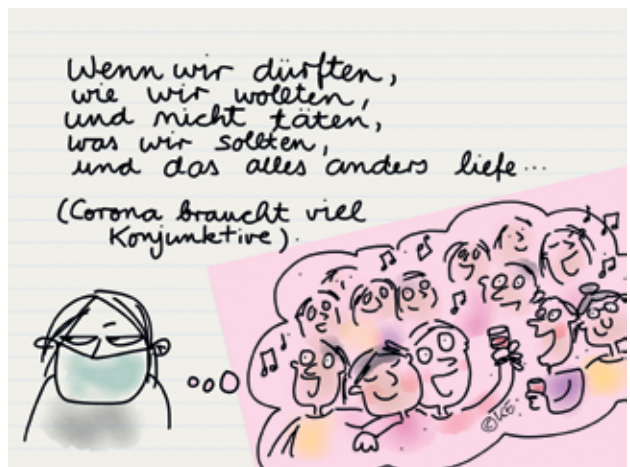 Wenn wir dürften,
wie wir wollten,
und nicht täten,
was wir sollten,
und das alles anders liefe...
(Corona braucht viel
Konjunktive).
©KE.